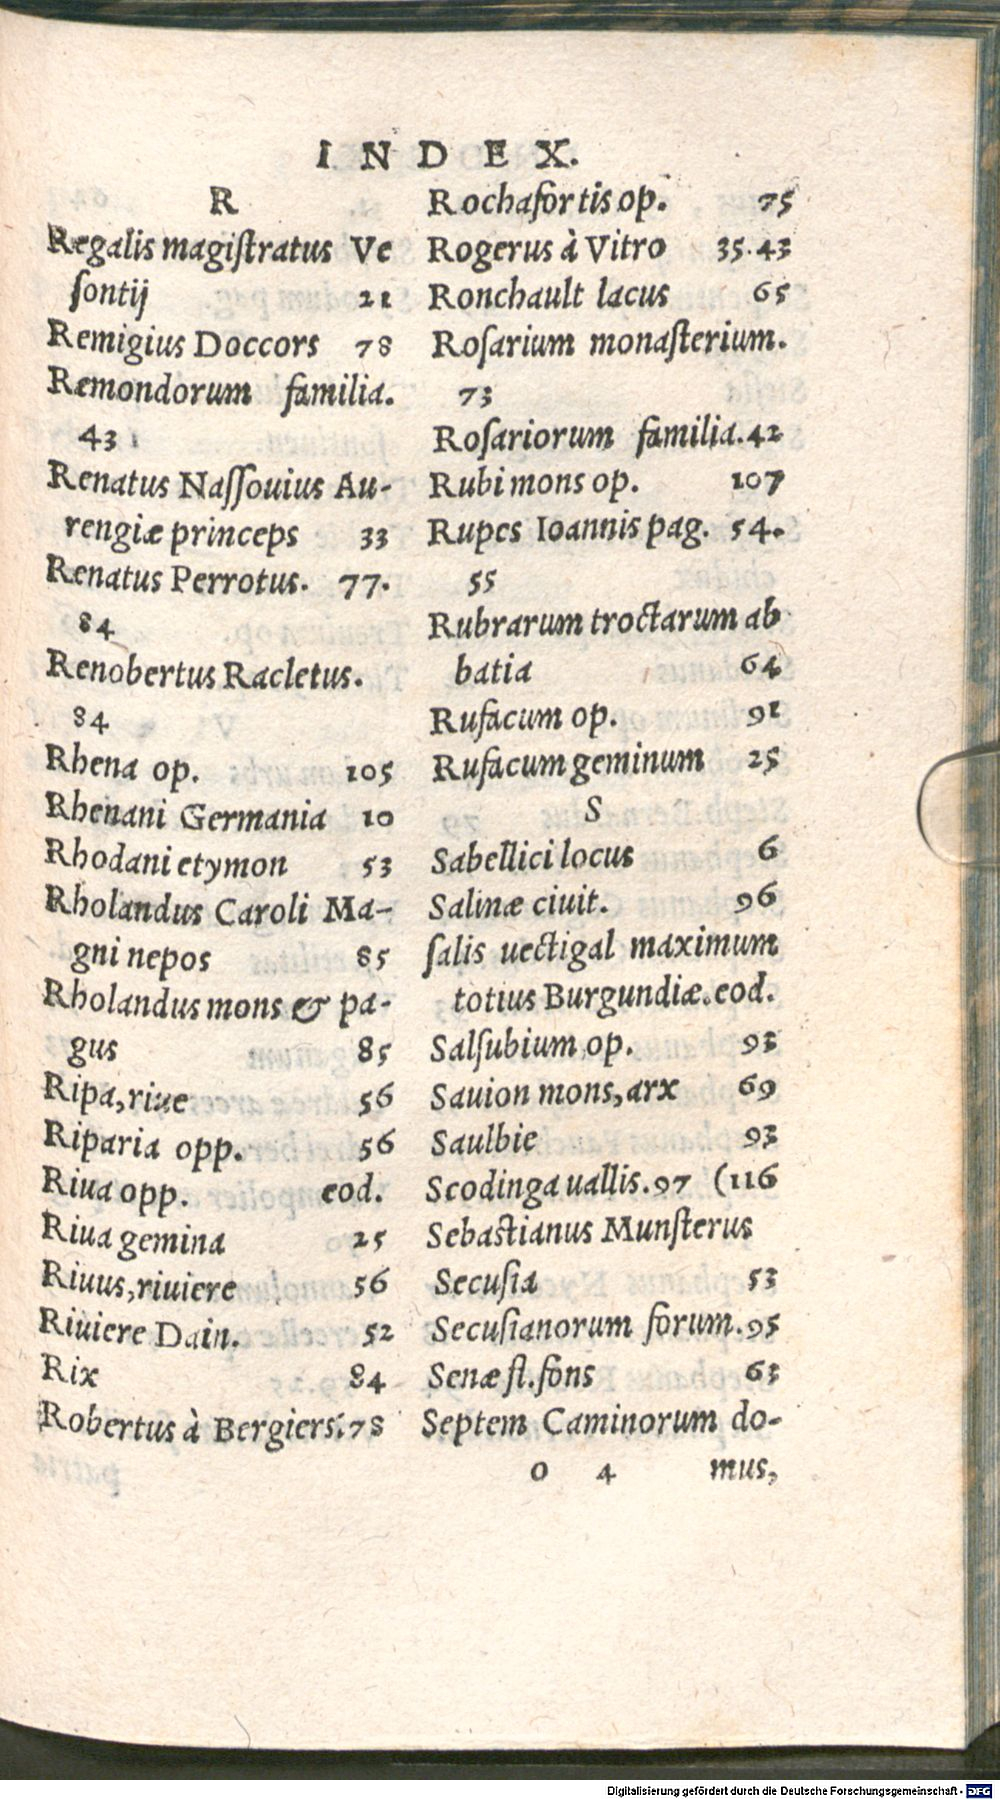 INDEX.
R
Regalis magiſtratus Ve
ſontij 21
Remigius Doccors 78
Remondorum familia.
43
Renatus Naſſouius Au-
rengiæ princeps 33
Renatus Perrotus. 77.
84
Renobertus Racletus.
84
Rhena op. 105
Rhenani Germania 10
Rhodani etymon 53
Rholandus Caroli Ma-
gni nepos 85
Rholandus mons & pa-
gus 85
Ripa, riue 56
Riparia opp. 56
Riua opp. eod.
Riua gemina 25
Riuus, riuiere 56
Riuiere Dain. 52
Rix 84
Robertus à Bergiers. 78
Rochafortis op. 75
Rogerus à Vitro 35.43
Ronchault lacus 65
Roſarium monaſterium.
73
Roſariorum familia. 42
Rubi mons op. 107
Rupes Ioannis pag. 54.
55
Rubrarum troctarum ab
batia 64
Rufacum op. 91
Rufacum geminum 25
S
Sabellici locus 6
Salinæ ciuit. 96
ſalis uectigal maximum
totius Burgundiæ. eod.
Salſubium op. 93
Sauion mons, arx 69
Saulbie 93
Scodinga uallis. 97 (116
Sebaſtianus Munſterus
Secuſia 53
Secuſianorum forum. 95
Senæ fl. fons 63
Septem Caminorum do-
o 4 mus,
Digitalisierung gefördert durch die Deutsche Forschungsgemeinschaft - DFG